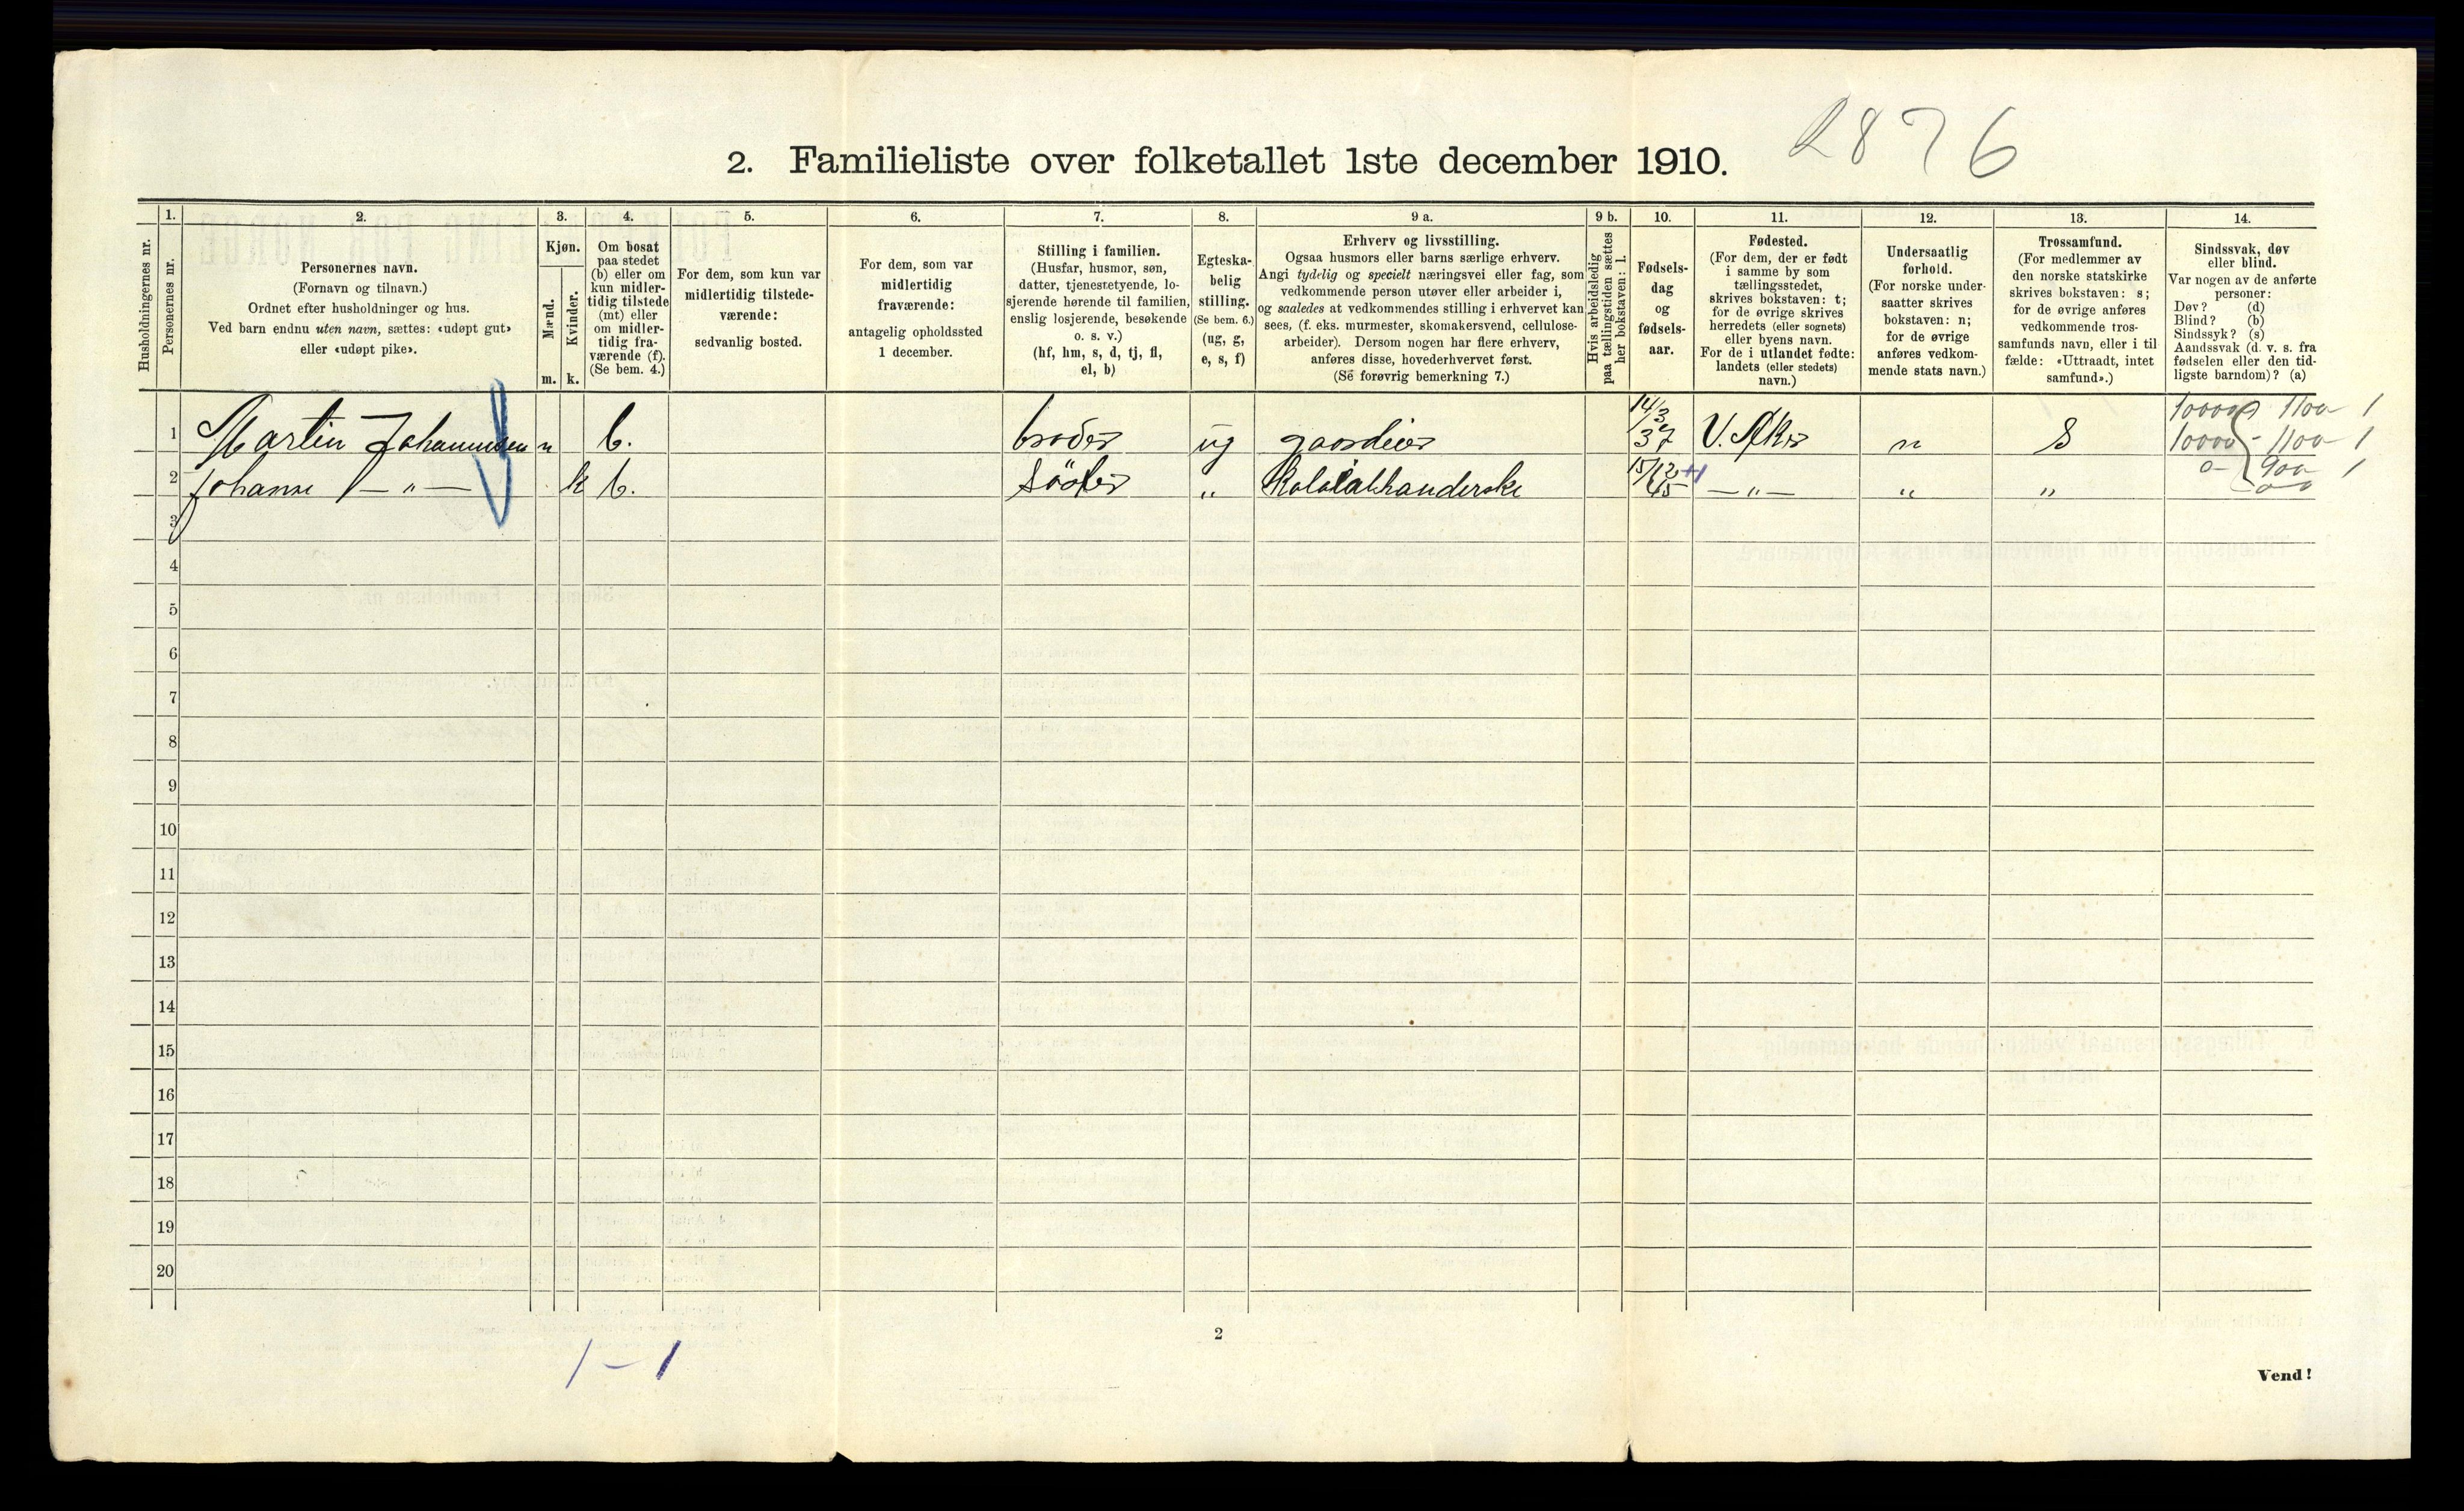 2876
2. Familieliste over folketallet 1ste december 1910.
Husholdningernes nr.
1.
Personernes nr.
2.
Personernes navn.
(Fornavn og tilnavn.)
Ordnet efter husholdninger og hus.
Ved barn endnu uten navn, sættes: «udøpt gut»
eller «udøpt pike».
3.
Kjøn.
Mænd.
Kvinder.
m. k.
4.
Om bosat
paa stedet
(b) eller om
kun midler-
tidig tilstede
(mt) eller
om midler-
tidig fra-
værende (f).
(Se bem. 4.)
5.
For dem, som kun var
midlertidig tilstede-
værende:
sedvanlig bosted.
6.
For dem, som var
midlertidig
fraværende:
antagelig opholdssted
1 december.
7.
Stilling i familien.
(Husfar, husmor, søn,
datter, tjenestetyende, lo-
sjerende hørende til familien,
enslig losjerende, besøkende
o. s. v.)
(hf, hm, s, d, tj, fl,
el, b)
8.
Egteska-
belig
stilling.
(Se bem. 6.)
(ug, g,
e, s, f)
9 a.
Erhverv og livsstilling.
Ogsaa husmors eller barns særlige erhverv.
Angi tydelig og specielt næringsvei eller fag, som
vedkommende person utøver eller arbeider i,
og saaledes at vedkommendes stilling i erhvervet kan
sees, (f. eks. murmester, skomakersvend, cellulose-
arbeider). Dersom nogen har flere erhverv,
anføres disse, hovederhvervet først.
(Se forøvrig bemerkning 7.)
9 b.
Hvis arbeidsledig
paa tællingstiden sættes
her bokstaven: l.
10.
Fødsels-
dag
og
fødsels-
aar.
11.
Fødested.
(For dem, der er født
i samme by som
tællingsstedet,
skrives bokstaven: t;
for de øvrige skrives
herredets (eller sognets)
eller byens navn.
For de i utlandet fødte:
landets (eller stedets)
navn.)
12.
Undersaatlig
forhold.
(For norske under-
saatter skrives
bokstaven: n;
for de øvrige
anføres vedkom-
mende stats navn.)
13.
Trossamfund.
(For medlemmer av
den norske statskirke
skrives bokstaven: s;
for de øvrige anføres
vedkommende tros-
samfunds navn, eller i til
fælde: «Uttraadt, intet
samfund».)
14.
Sindssvak, døv
eller blind.
Var nogen av de anførte
personer:
Døv? (d)
Blind? (b)
Sindssyk? (s)
Aandssvak (d. v. s. fra
fødselen eller den tid-
ligste barndom)? (a)
1 Martin Johannessen m b. broder ug gaardeier 14/3 37 V. Aker n S 10000 - 1100 1
10000 - 1100 1
2 Johanne — „ — k b. søster „ 15/12 45 +1 — „ — „ „ 0 - 900 1
3
4
5
6
7
8
9
10
11
12
13
14
15
16
17
18
19
20
1 - 1
2
Vend!